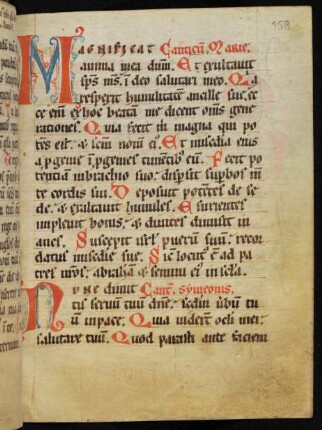 158
Magnificat Canticu. Marie.
anima mea dnm. Et exultavit
sps ms. i deo salutari meo. Qia
respexit humilitate ancille sue. ec
ce em ex hoc beata me dicent oms gene
rationes. Quia fecit m magna qui po
tes est. & scm nom ei. Et misedia eius
a pgenie i pgenies timetib eu. Fecit po
tentia in brachio suo. dispsit supbos m
te cordis sui. Deposuit potetes de se
de. & exaltavit humiles. Esurientes
implevit bonis. & divites dimisit in
anes. Suscepit isrl pueru suu. recor
datus misedie sue. Sic locut e ad pa
tres nros. abraha & semini ei in scla.
Nunc dimit Cant. symeonis.
tis servu tuu dne. scdm vbu tu
u in pace. Quia viderut ocli mei.
salutare tuu. Quod parasti ante faciem